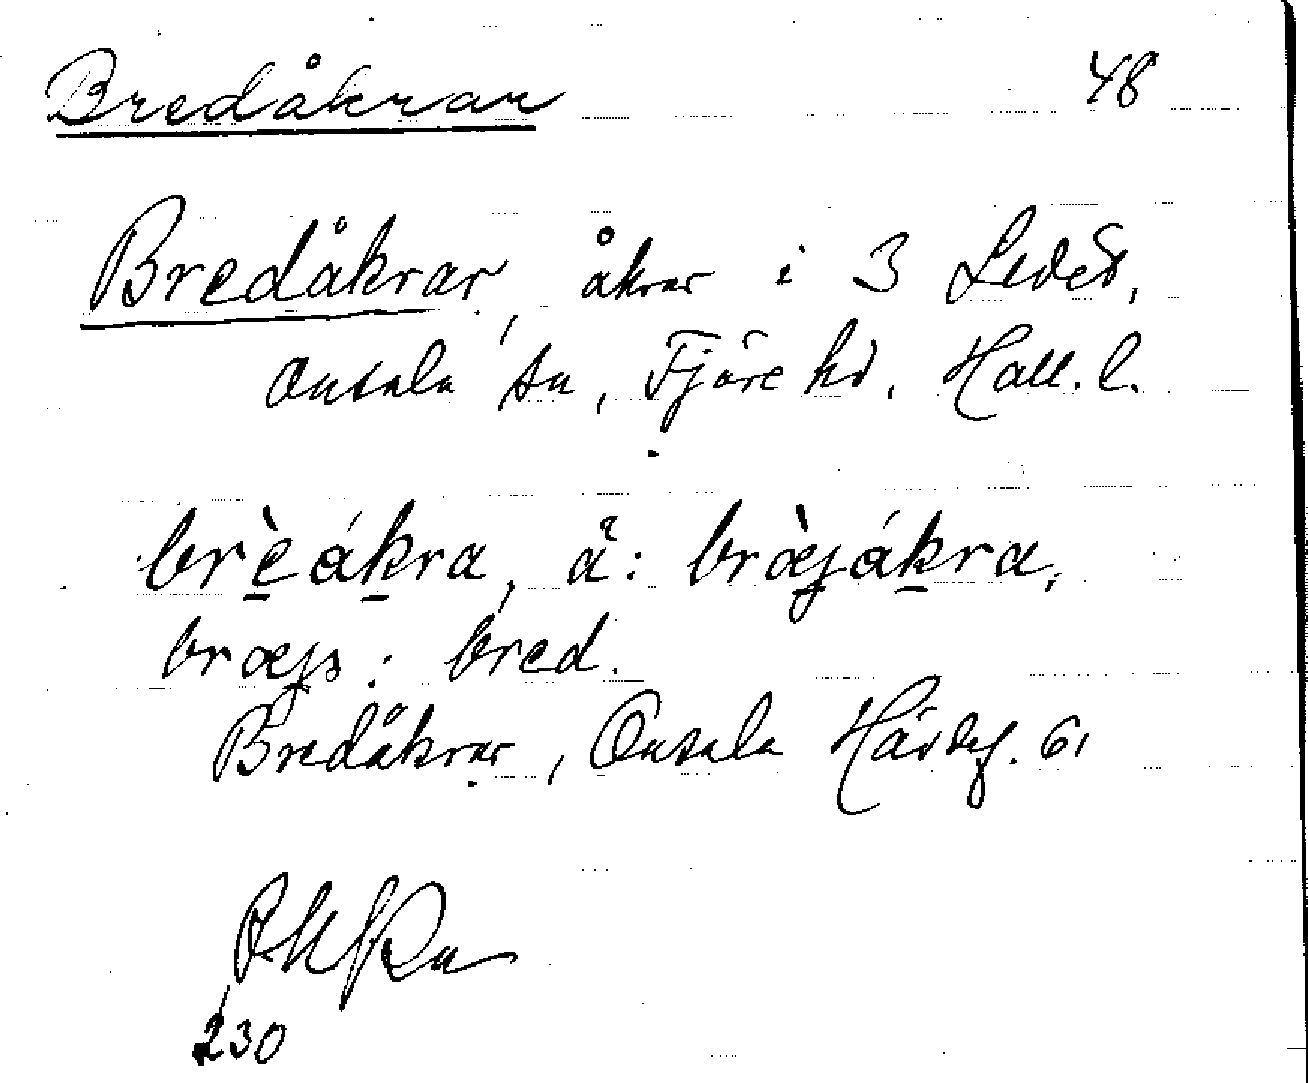 Bredåkrar 48
Bredåkrar, åkrar i 3 Ledet,
Onsala sn, Fjäre hd, Hall. l.
brèákra, ä: bræ̀jákra,
bræjs: bred.
Bredåkrar, Onsala Hävdef. 61
230